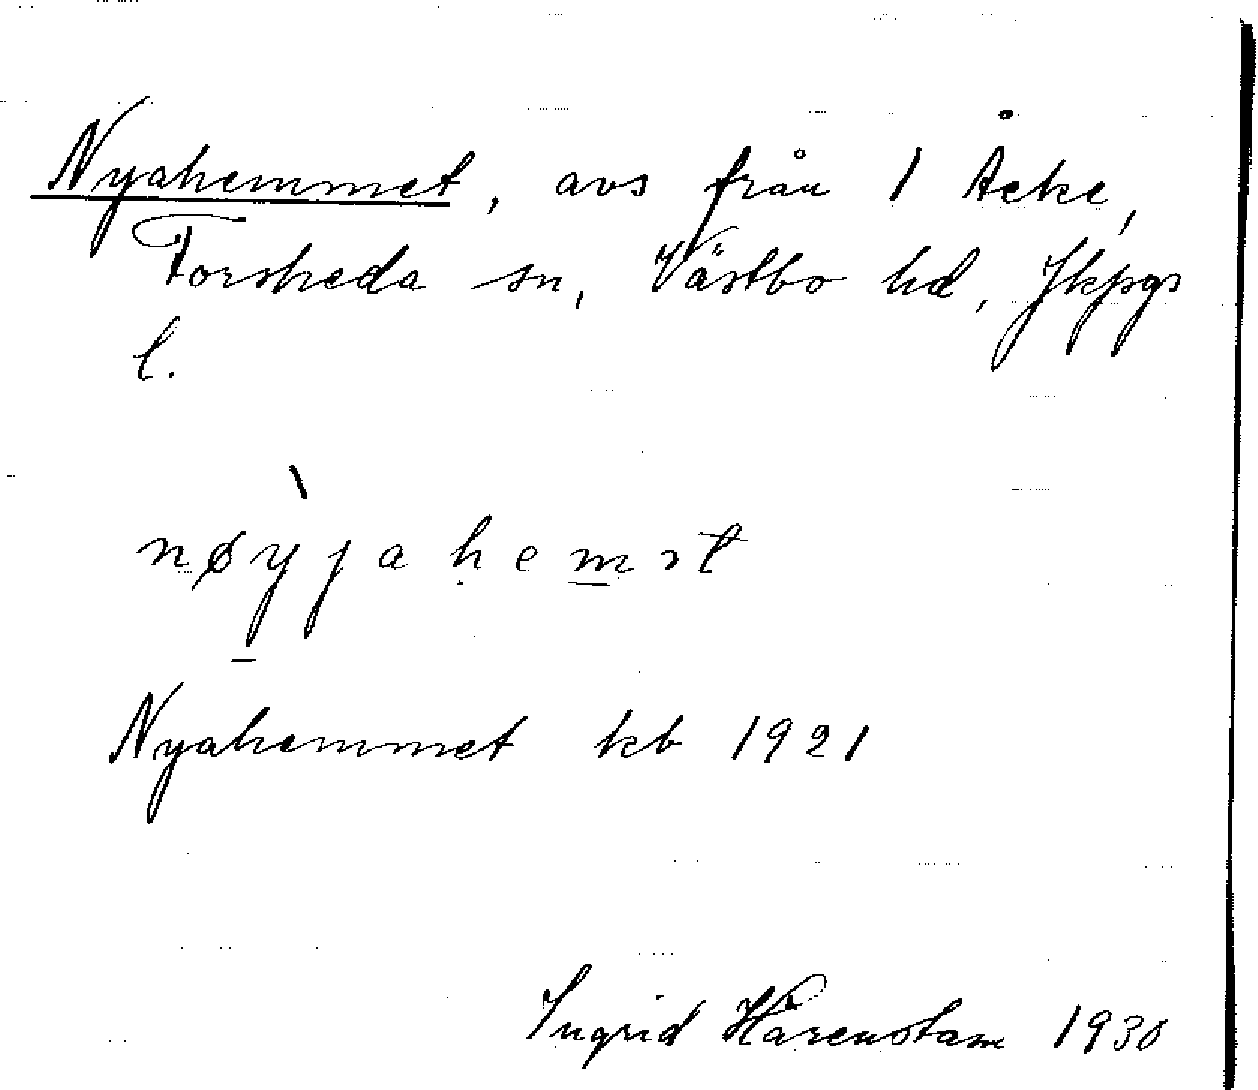 Nyahemmet, avs från 1 Åcke,
Torsheda sn, Västbo hd, Jkpgs
l.
nøyjahemət
Nyahemmet kb 1921
Ingrid Hårenstam 1930